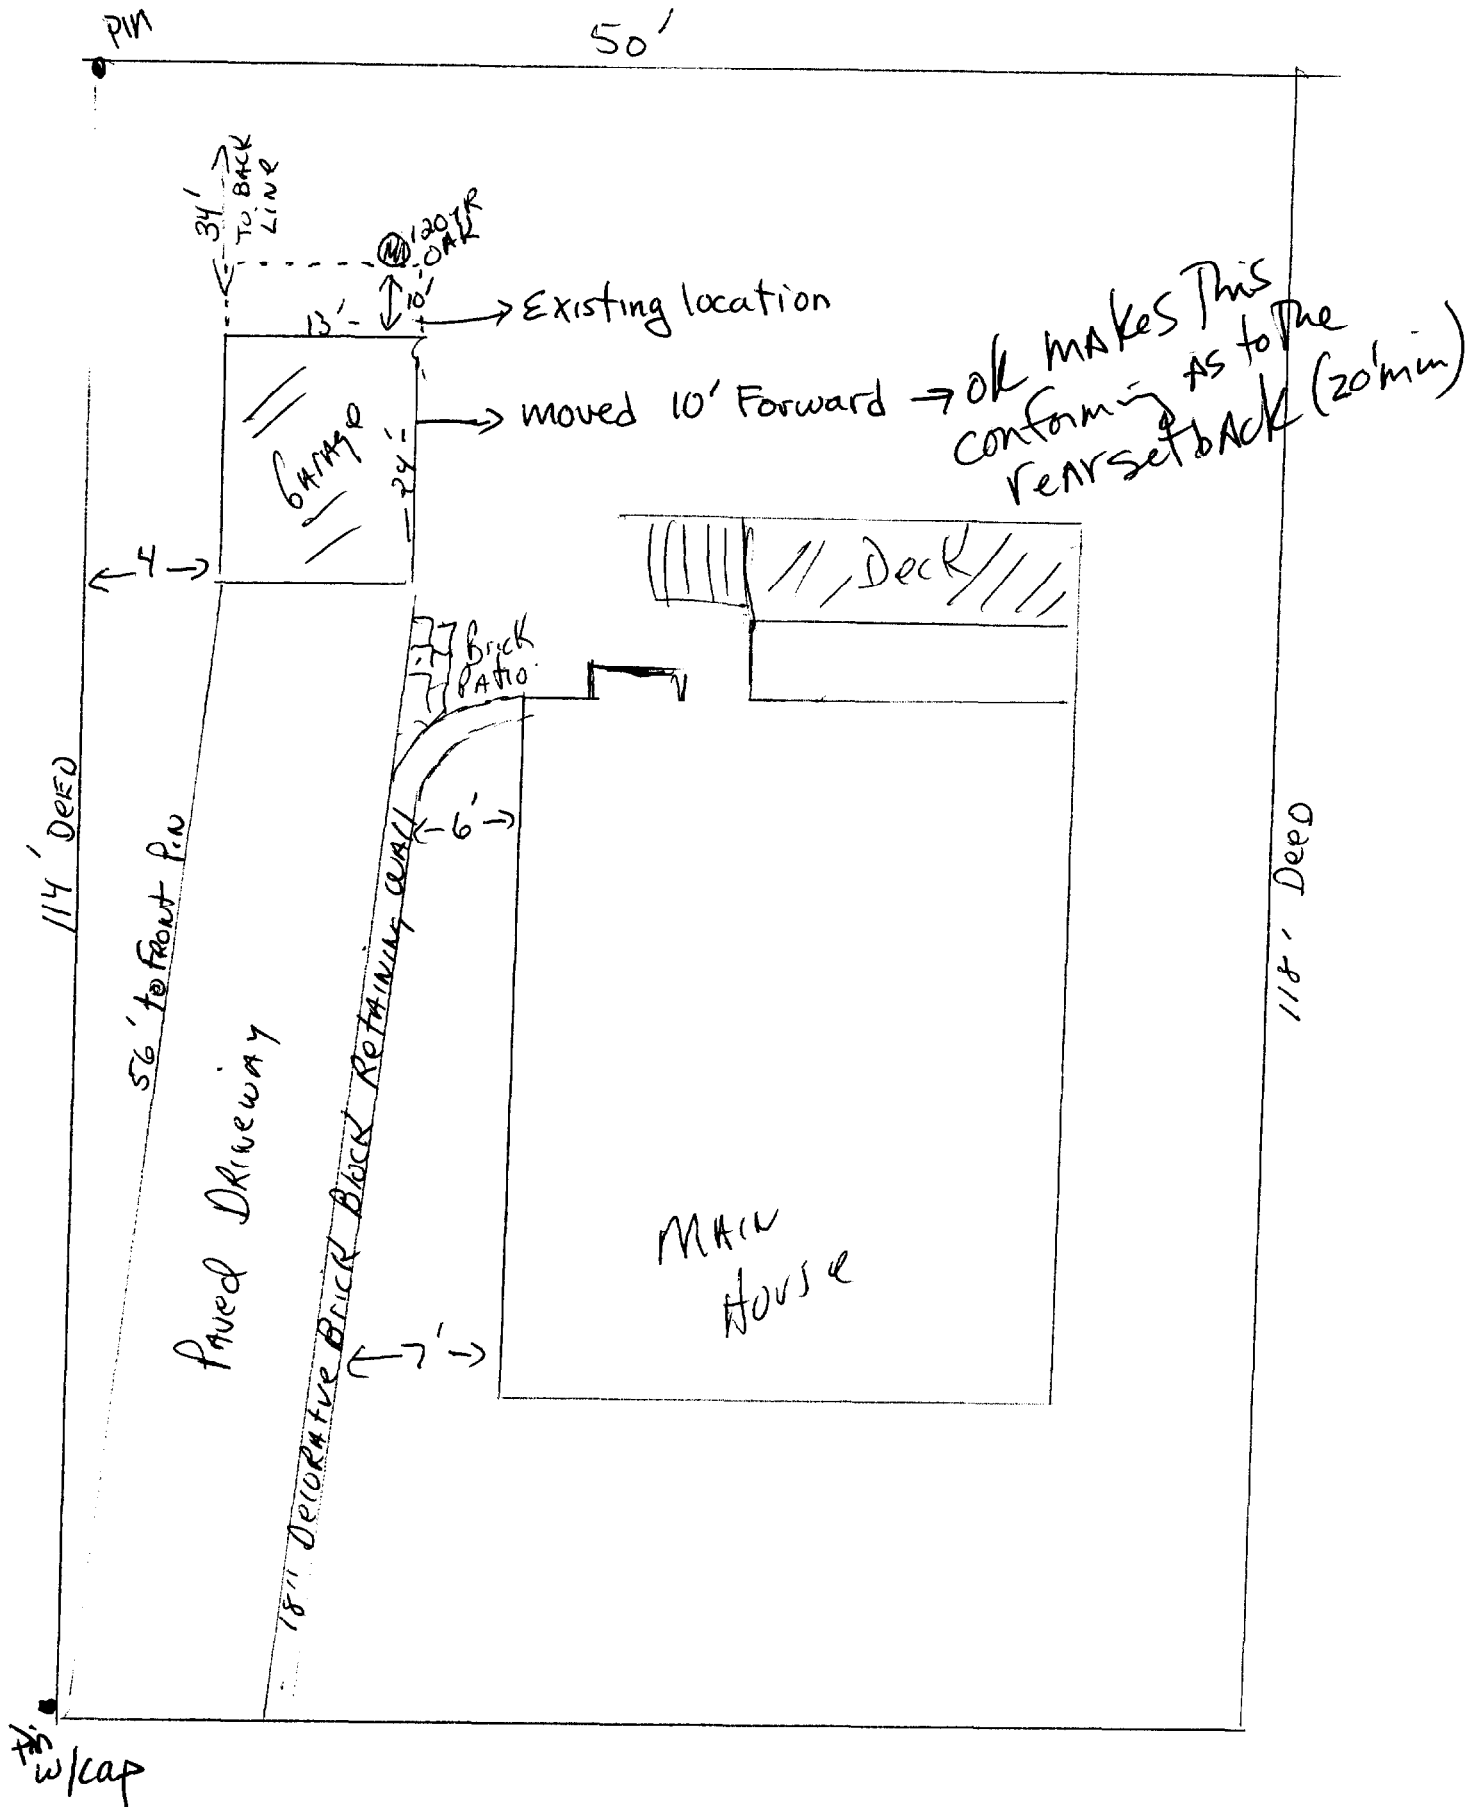 PIN
50'
34'
TO BACK
LINE
120 YR
OAK
10'
13'-
Existing location
moved 10' Forward → ok makes This
conforming as to The
rear setback (20' min)
Garage
- 24' -
4
Deck
Brick
Patio
6'
114' Deed
56' to Front Pin
118' Deed
Paved Driveway
18" Decorative Brick Block Retaining Wall
7'
Main
House
w/cap